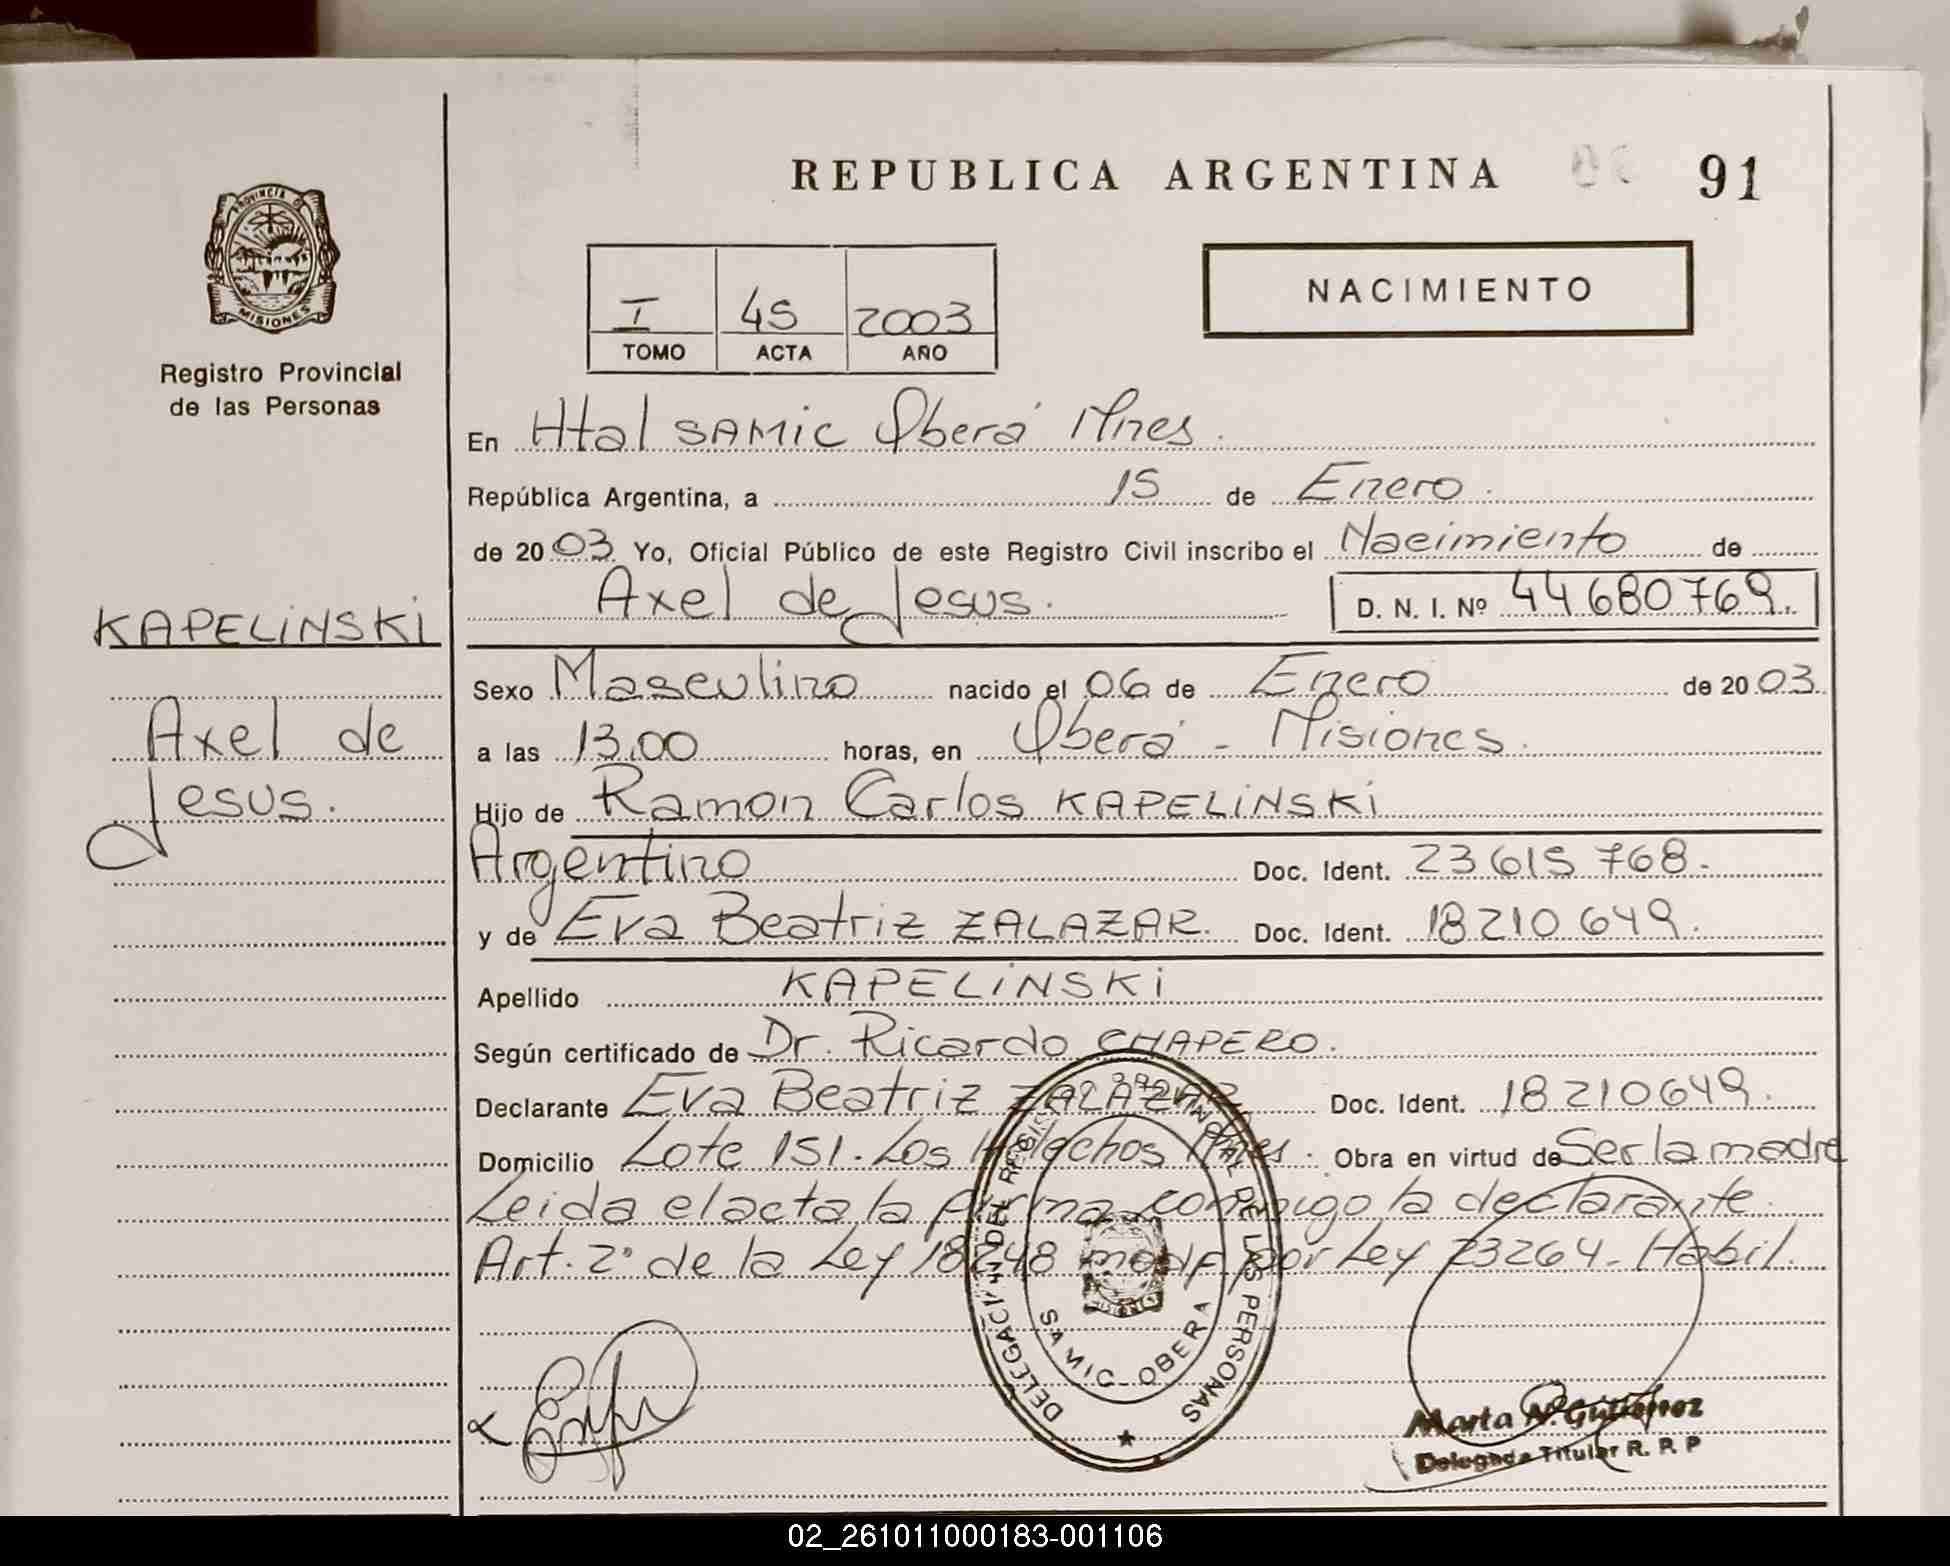 REPUBLICA ARGENTINA 91
PROVINCIA DE
MISIONES
Registro Provincial
de las Personas
NACIMIENTO
I 45 2003
TOMO ACTA AÑO
En Htal SAMIC Oberá Mnes.
República Argentina, a 15 de Enero.
de 2003 Yo, Oficial Público de este Registro Civil inscribo el Nacimiento de
Axel de Jesus. D. N. I. Nº 44680769.
KAPELINSKI
Axel de
Jesus.
Sexo Masculino nacido el 06 de Enero de 2003.
a las 13,00 horas, en Oberá - Misiones.
Hijo de Ramon Carlos KAPELINSKI
Argentino Doc. Ident. 23615768.
y de Eva Beatriz ZALAZAR. Doc. Ident. 18210649.
Apellido KAPELINSKI
Según certificado de Dr. Ricardo CHAPERO.
Declarante Eva Beatriz ZALAZAR Doc. Ident. 18210649.
Domicilio Lote 151. Los Helechos Mnes. Obra en virtud de Ser la madre
Leida el acta la firma conmigo la declarante.
Art. 2° de la Ley 18248 modf por Ley 23264. Habil.
DELEGACION DEL REGISTRO PROVINCIAL DE LAS PERSONAS
SAMIC - OBERA
Marta N. Gutierrez
Delegada Titular R. P. P
02_261011000183-001106